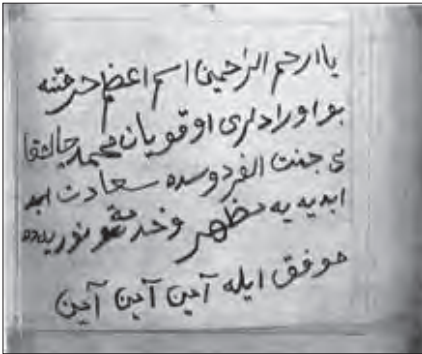 يا ارحم الراحمين اسم اعظم حرمتنه
بو اورادلرى اوقويان محمد چالشقا
نى جنت الفردوسده سعادت ابد
ابديه يه مظهر و خدمت نوريه ده
موفق ايله آمين آمين آمين